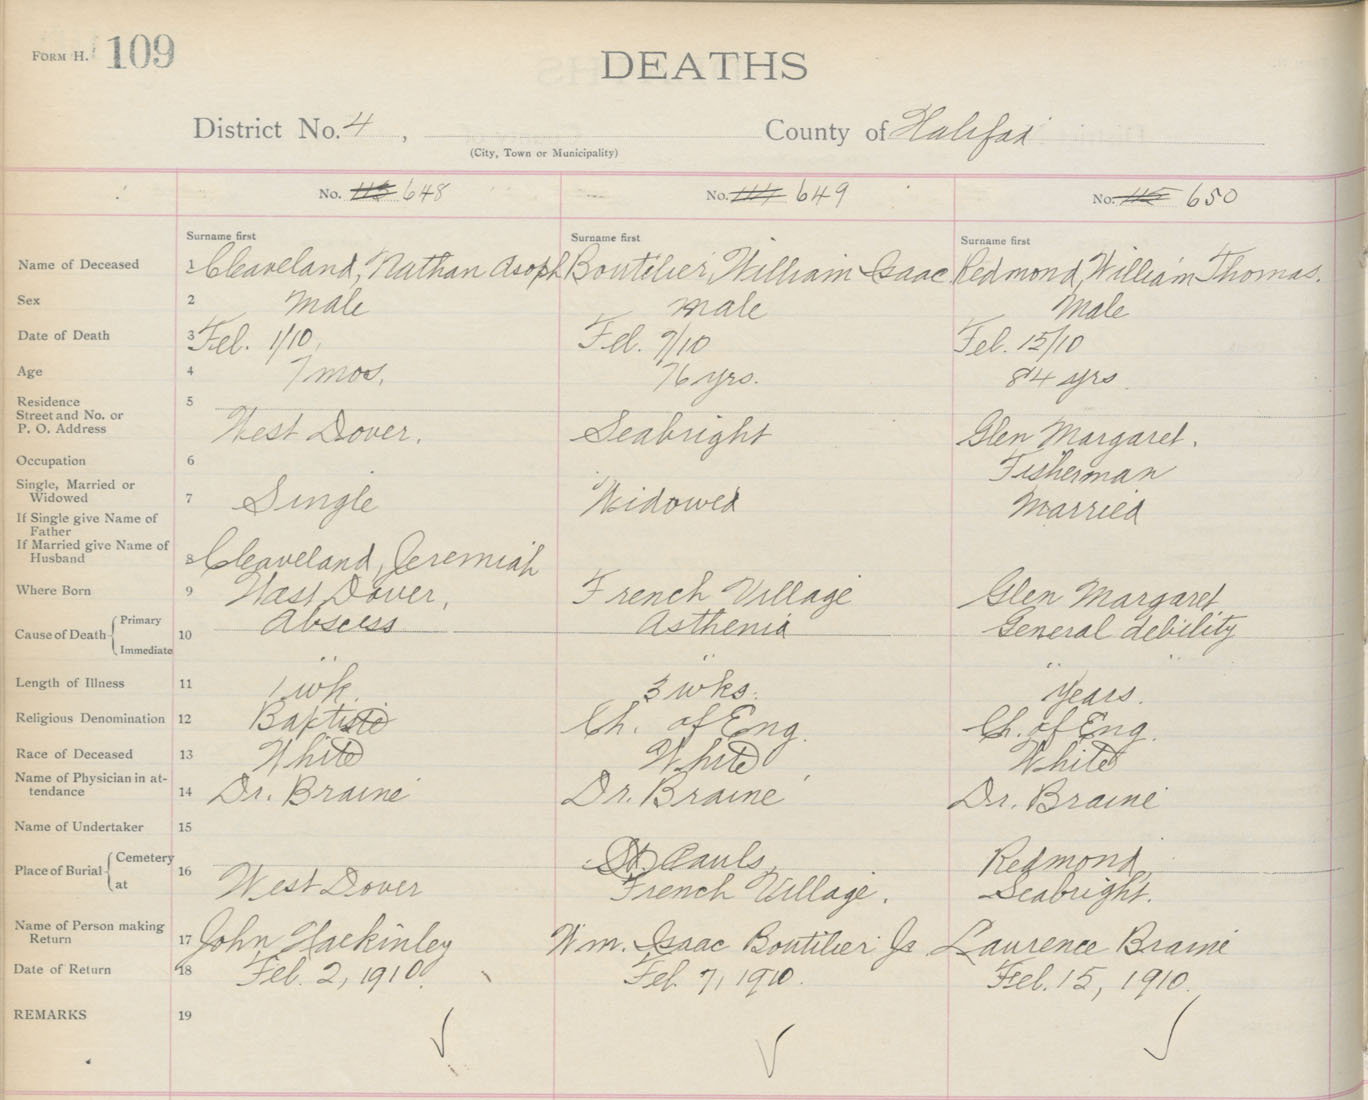 FORM H. 109
DEATHS
District No. 4 , County of Halifax
(City, Town or Municipality)
No. 648 No. 649 No. 650
Surname first Surname first Surname first
Name of Deceased 1 Cleaveland, Nathan Asoph Boutilier, William Isaac Redmond, William Thomas.
Sex 2 Male Male Male
Date of Death 3 Feb. 1/10, Feb. 7/10 Feb. 15/10
Age 4 7 mos. 76 yrs. 84 yrs
Residence 5
Street and No. or
P. O. Address West Dover. Seabright Glen Margaret.
Occupation 6 Fisherman
Single, Married or
Widowed 7 Single Widowed Married
If Single give Name of
Father
If Married give Name of
Husband 8 Cleaveland, Jeremiah
Where Born 9 West Dover, French Village Glen Margaret
Cause of Death Primary 10 Abscess Asthenia General debility
Immediate " " " "
Length of Illness 11 1 wk. 3 wks. Years.
Religious Denomination 12 Baptist Ch. of Eng. Ch. of Eng.
Race of Deceased 13 White White White
Name of Physician in at-
tendance 14 Dr. Braine Dr. Braine Dr. Braine
Name of Undertaker 15
Place of Burial Cemetery 16 St. Pauls, Redmond,
at West Dover French Village. Seabright.
Name of Person making
Return 17 John Mackinley Wm. Isaac Boutilier Jr Laurence Braine
Date of Return 18 Feb. 2, 1910. Feb 7, 1910. Feb. 15, 1910.
REMARKS 19